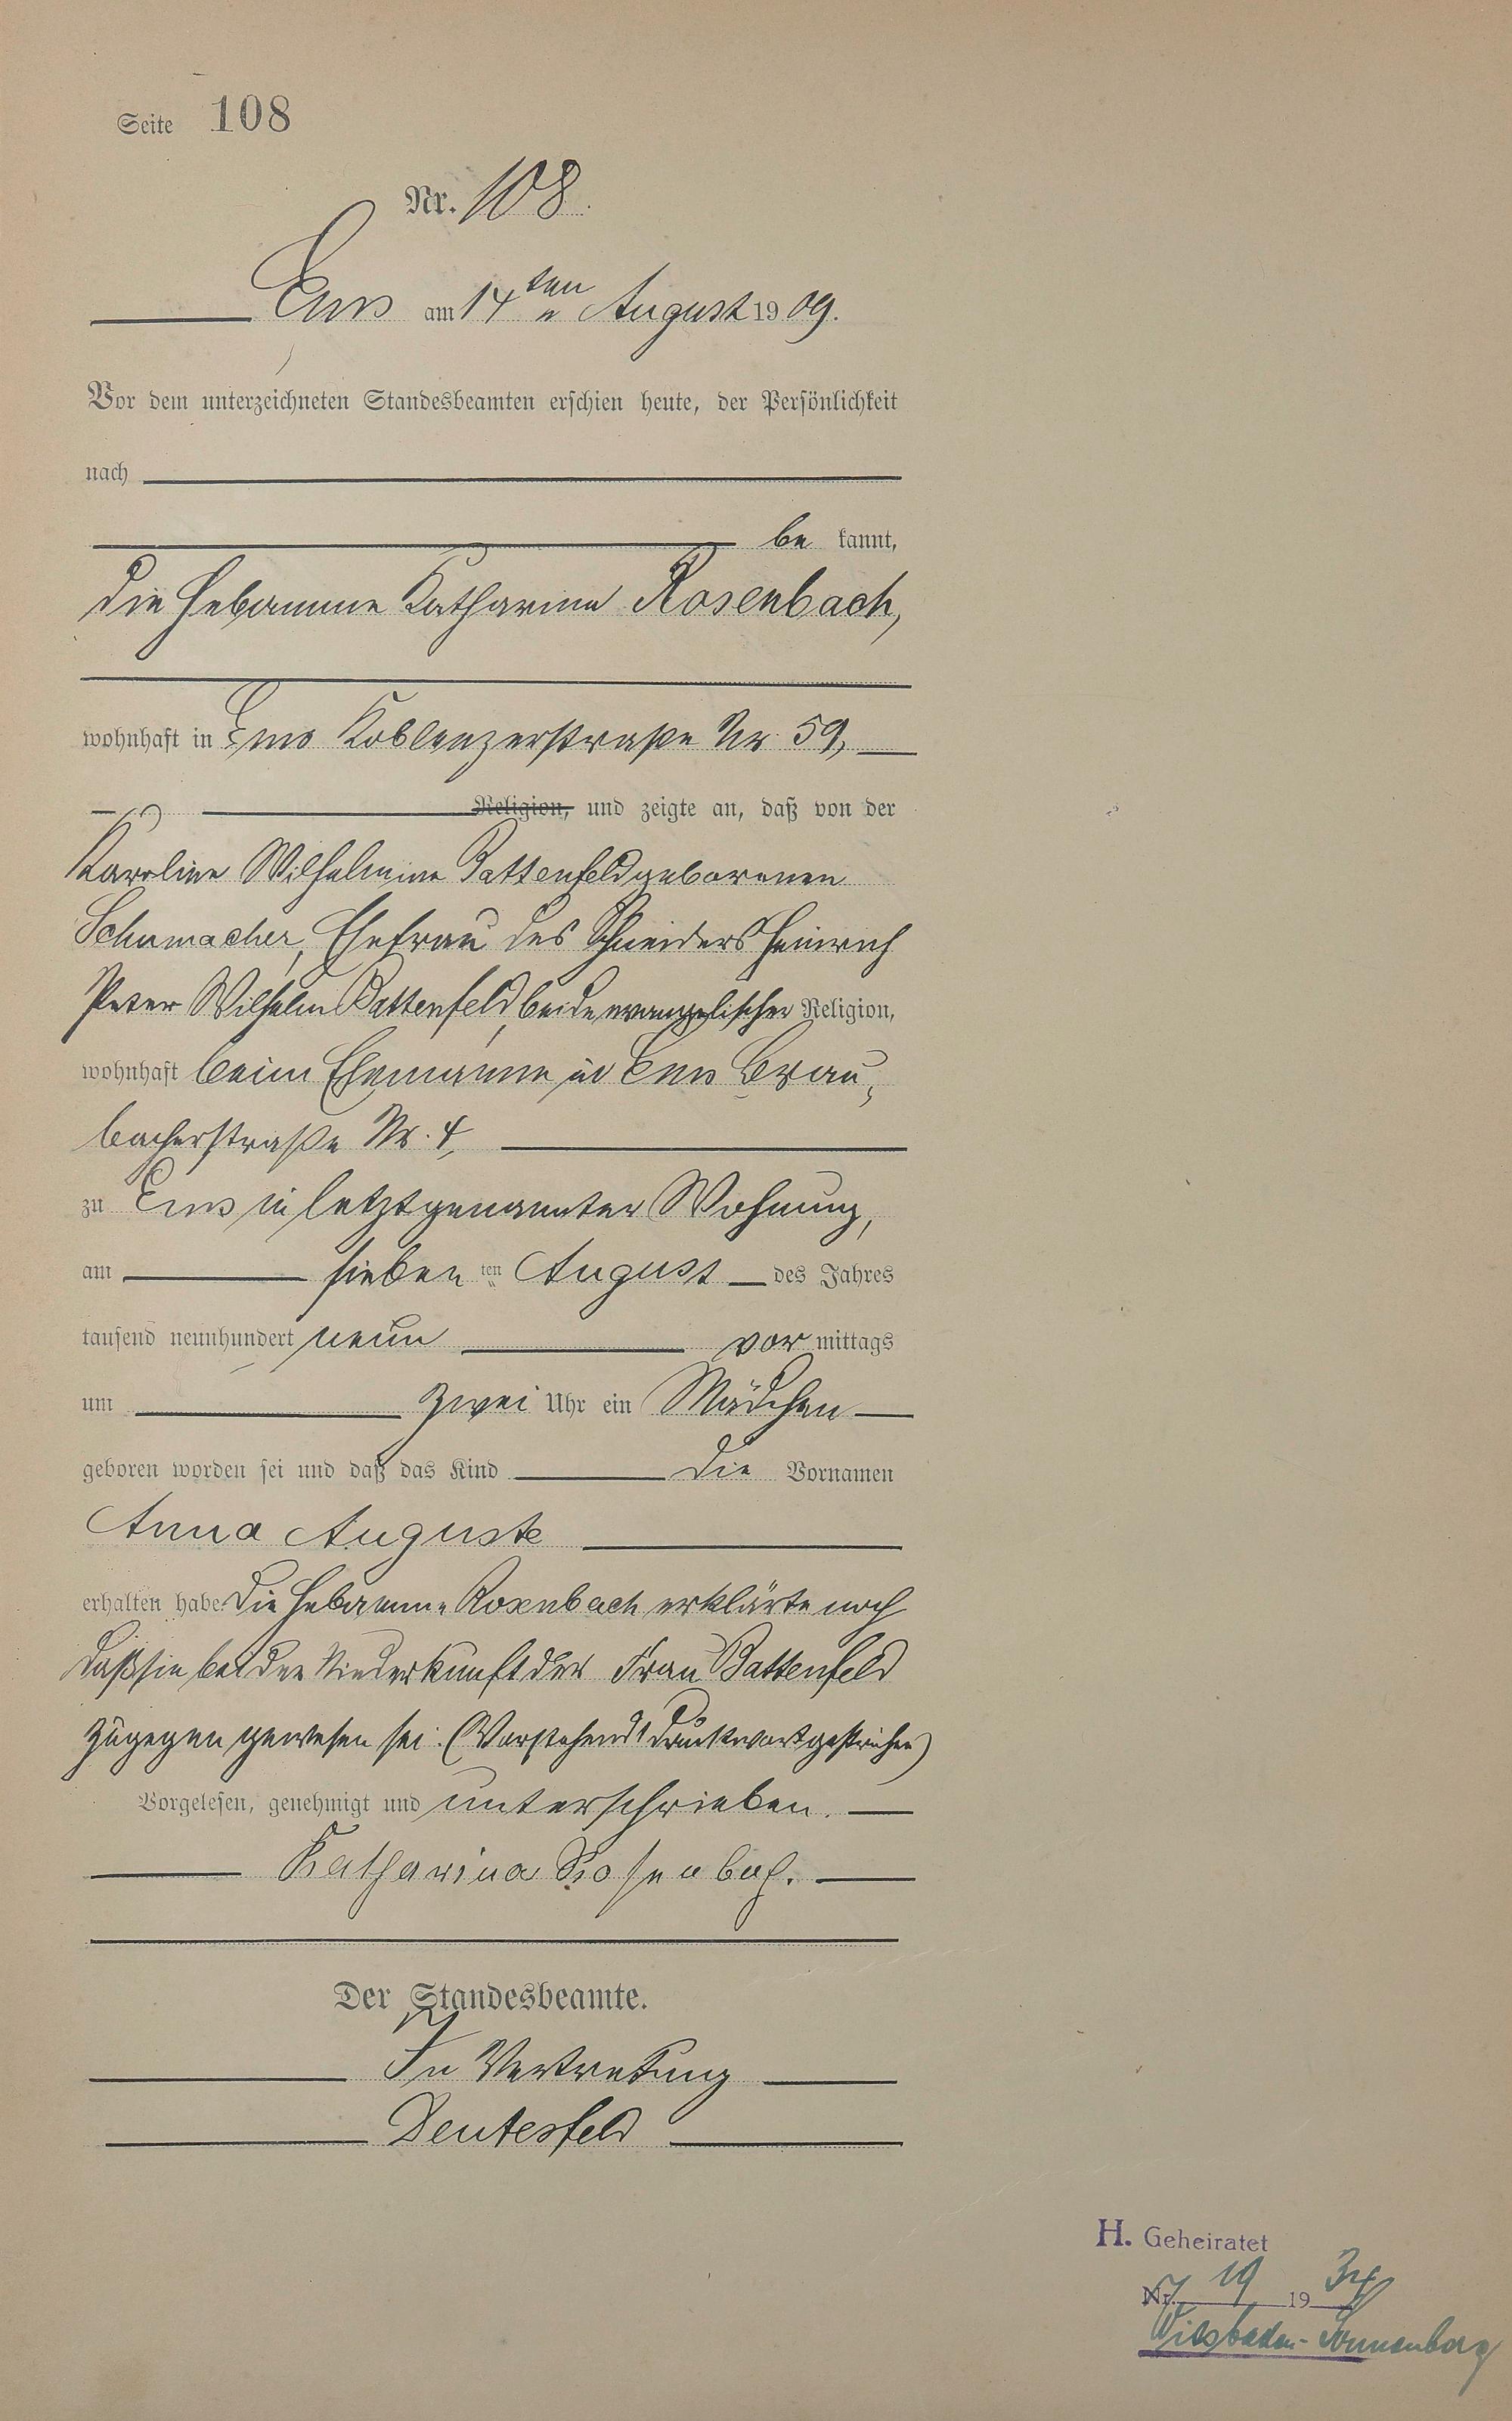 Seite 108
Nr. 108.
Ems am 14ten August 1909.
Vor dem unterzeichneten Standesbeamten erschien heute, der Persönlichkeit
nach
be kannt,
die Hebamme Katharina Rosenbach,
wohnhaft in Ems Koblenzerstraße Nr. 59,
Religion, und zeigte an, daß von der
Karoline Wilhelmine Battenfeld geborenen
Schumacher, Ehefrau des Schneiders Heinrich
Peter Wilhelm Battenfeld, beide evangelischer Religion,
wohnhaft beim Ehemanne in Ems Brau„
bacherstraße Nr. 4,
zu Ems in letztgenannter Wohnung,
am siebenten August des Jahres
tausend neunhundert neun vormittags
um zwei Uhr ein Mädchen
geboren worden sei und daß das Kind die Vornamen
Anna Auguste
erhalten habe. Die Hebamme Rosenbach erklärte noch
daß sie bei der Niederkunft der Frau Battenfeld
zugegen gewesen sei. (Vorstehend 1 Druckwort gestrichen)
Vorgelesen, genehmigt und unterschrieben.
Katharina Rosenbach.
Der Standesbeamte.
In Vertretung
Deutesfeld
H. Geheiratet
Nr. 19 1934
Wiesbaden-Sonnenberg